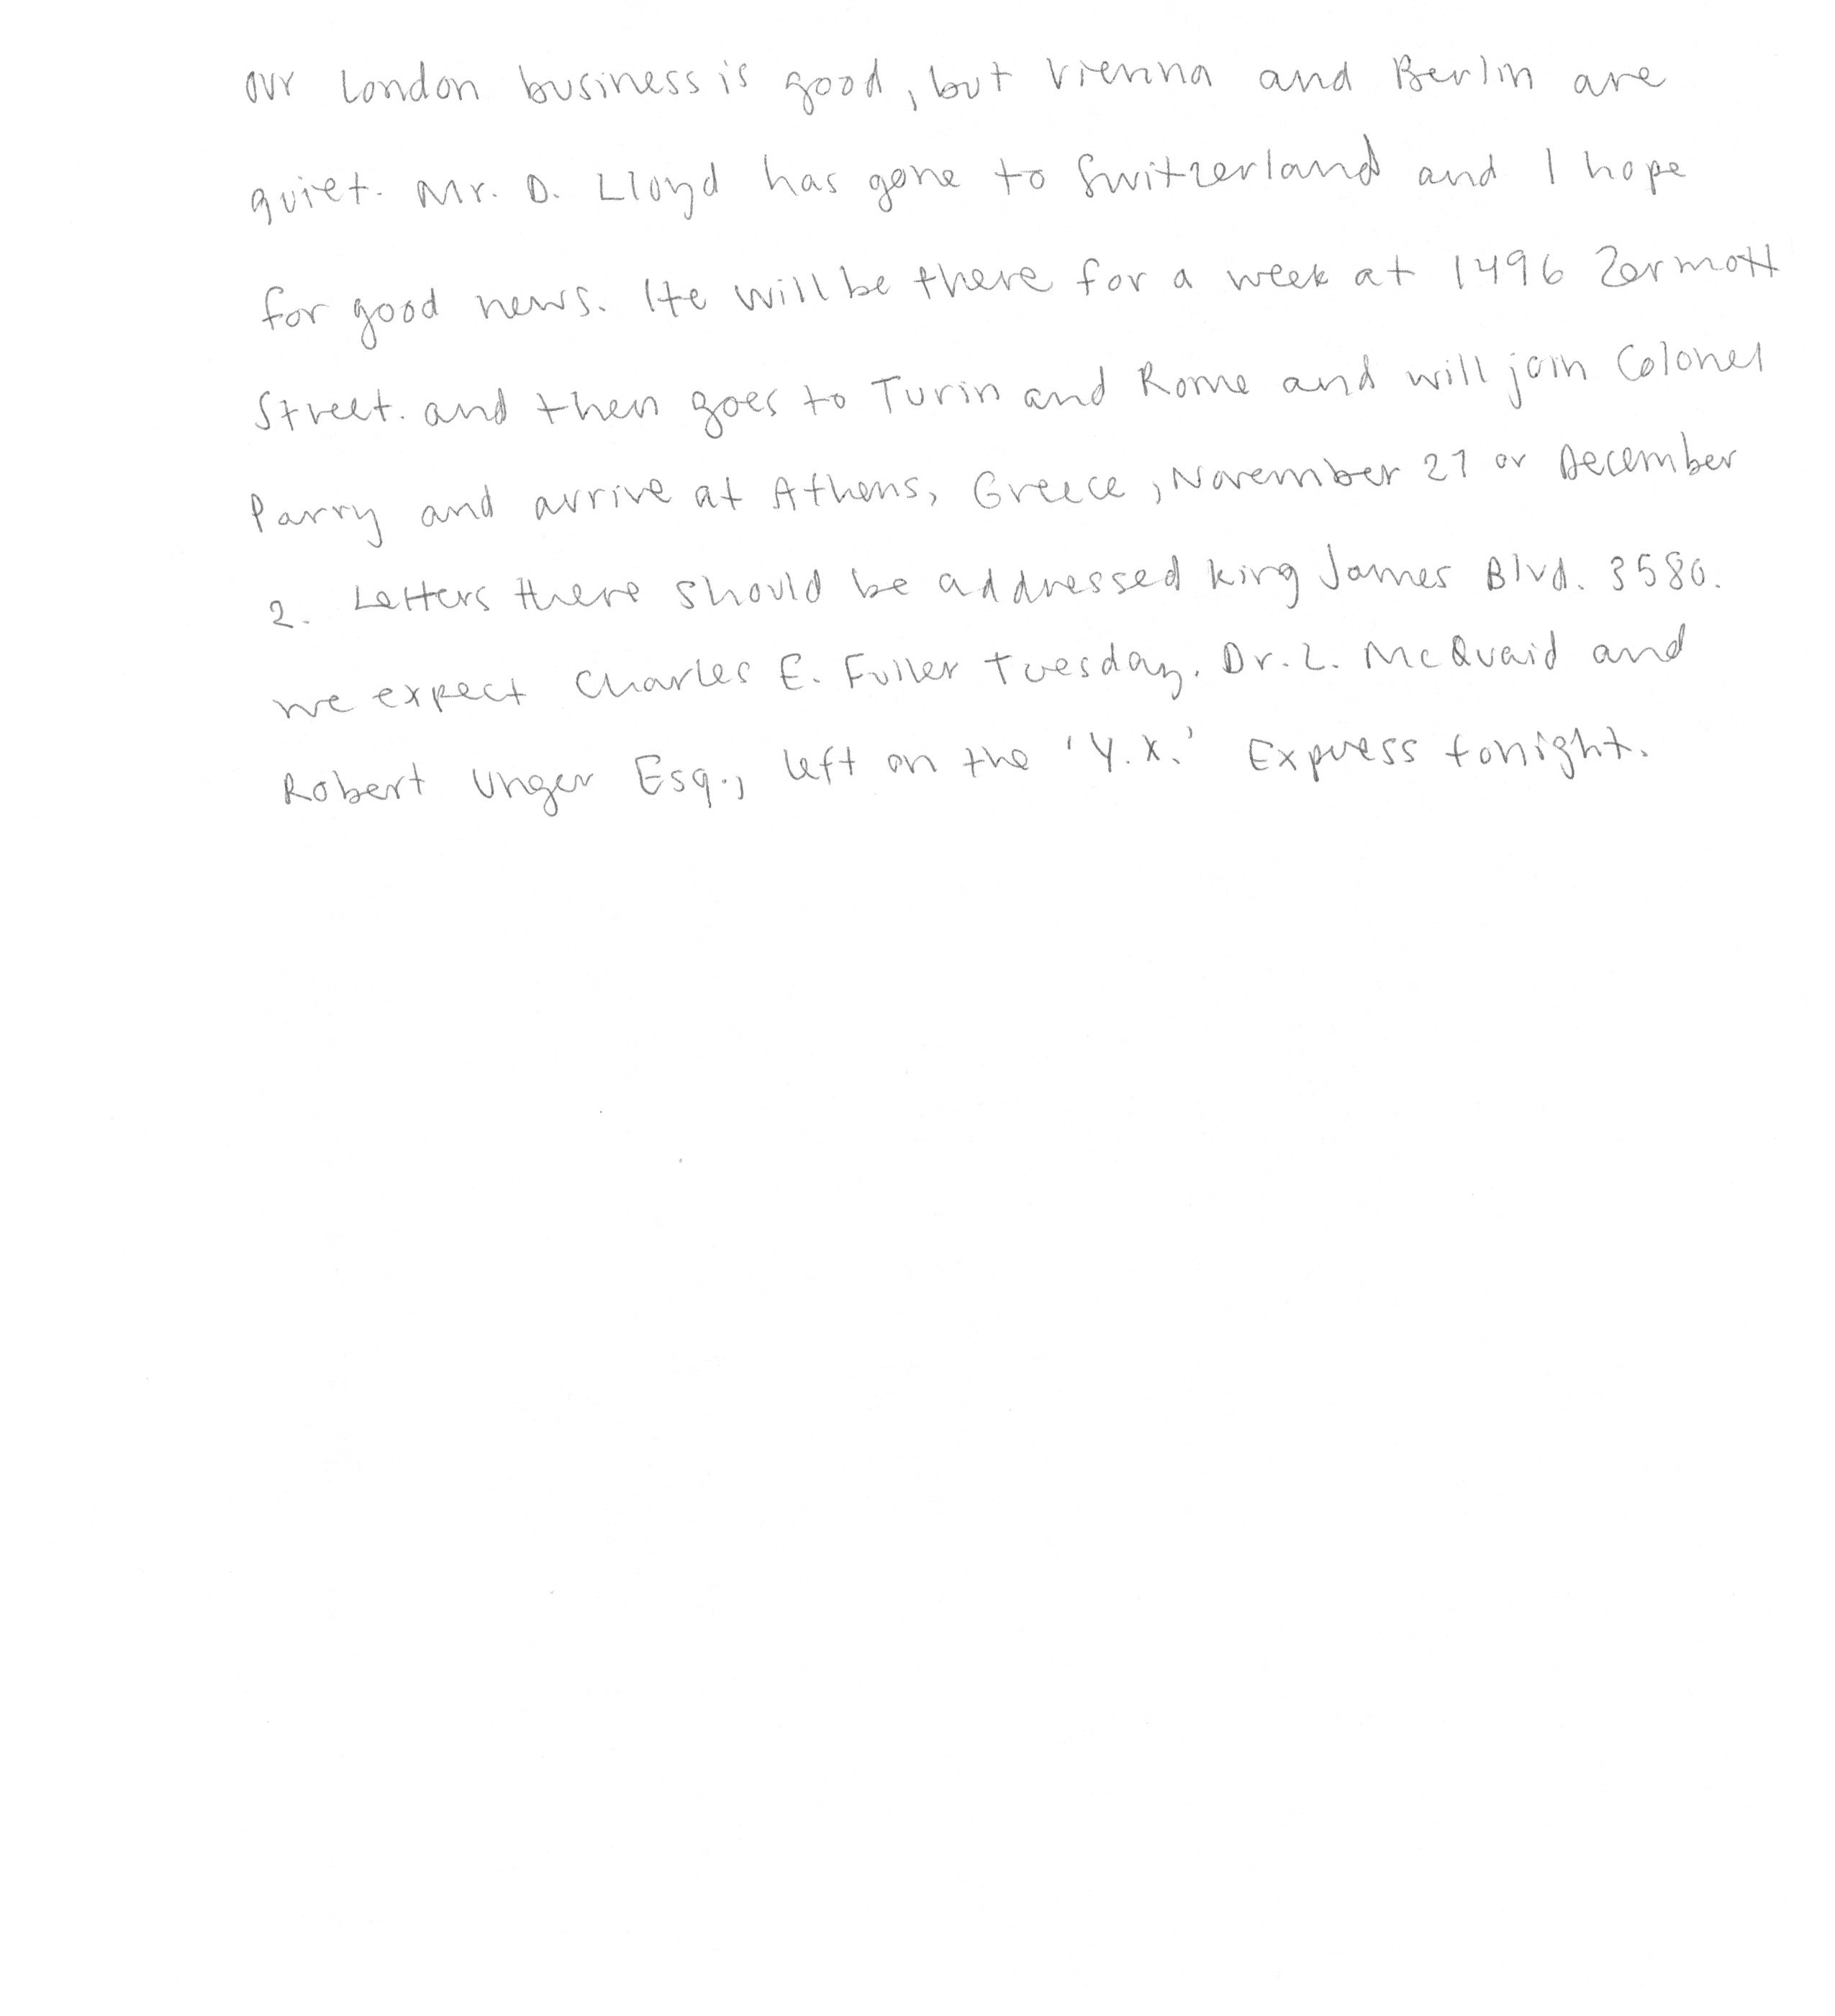 our London business is good, but Vienna and Berlin are
quiet. Mr. D. Lloyd has gone to Switzerland and I hope
for good news. He will be there for a week at 1496 Zermott
Street. and then goes to Turin and Rome and will join Colonel
Parry and arrive at Athens, Greece, November 27 or December
2. Letters there should be addressed King James Blvd. 3580.
we expect Charles E. Fuller Tuesday. Dr. L. McQuaid and
Robert Unger Esq., left on the 'Y.X.' Express tonight.